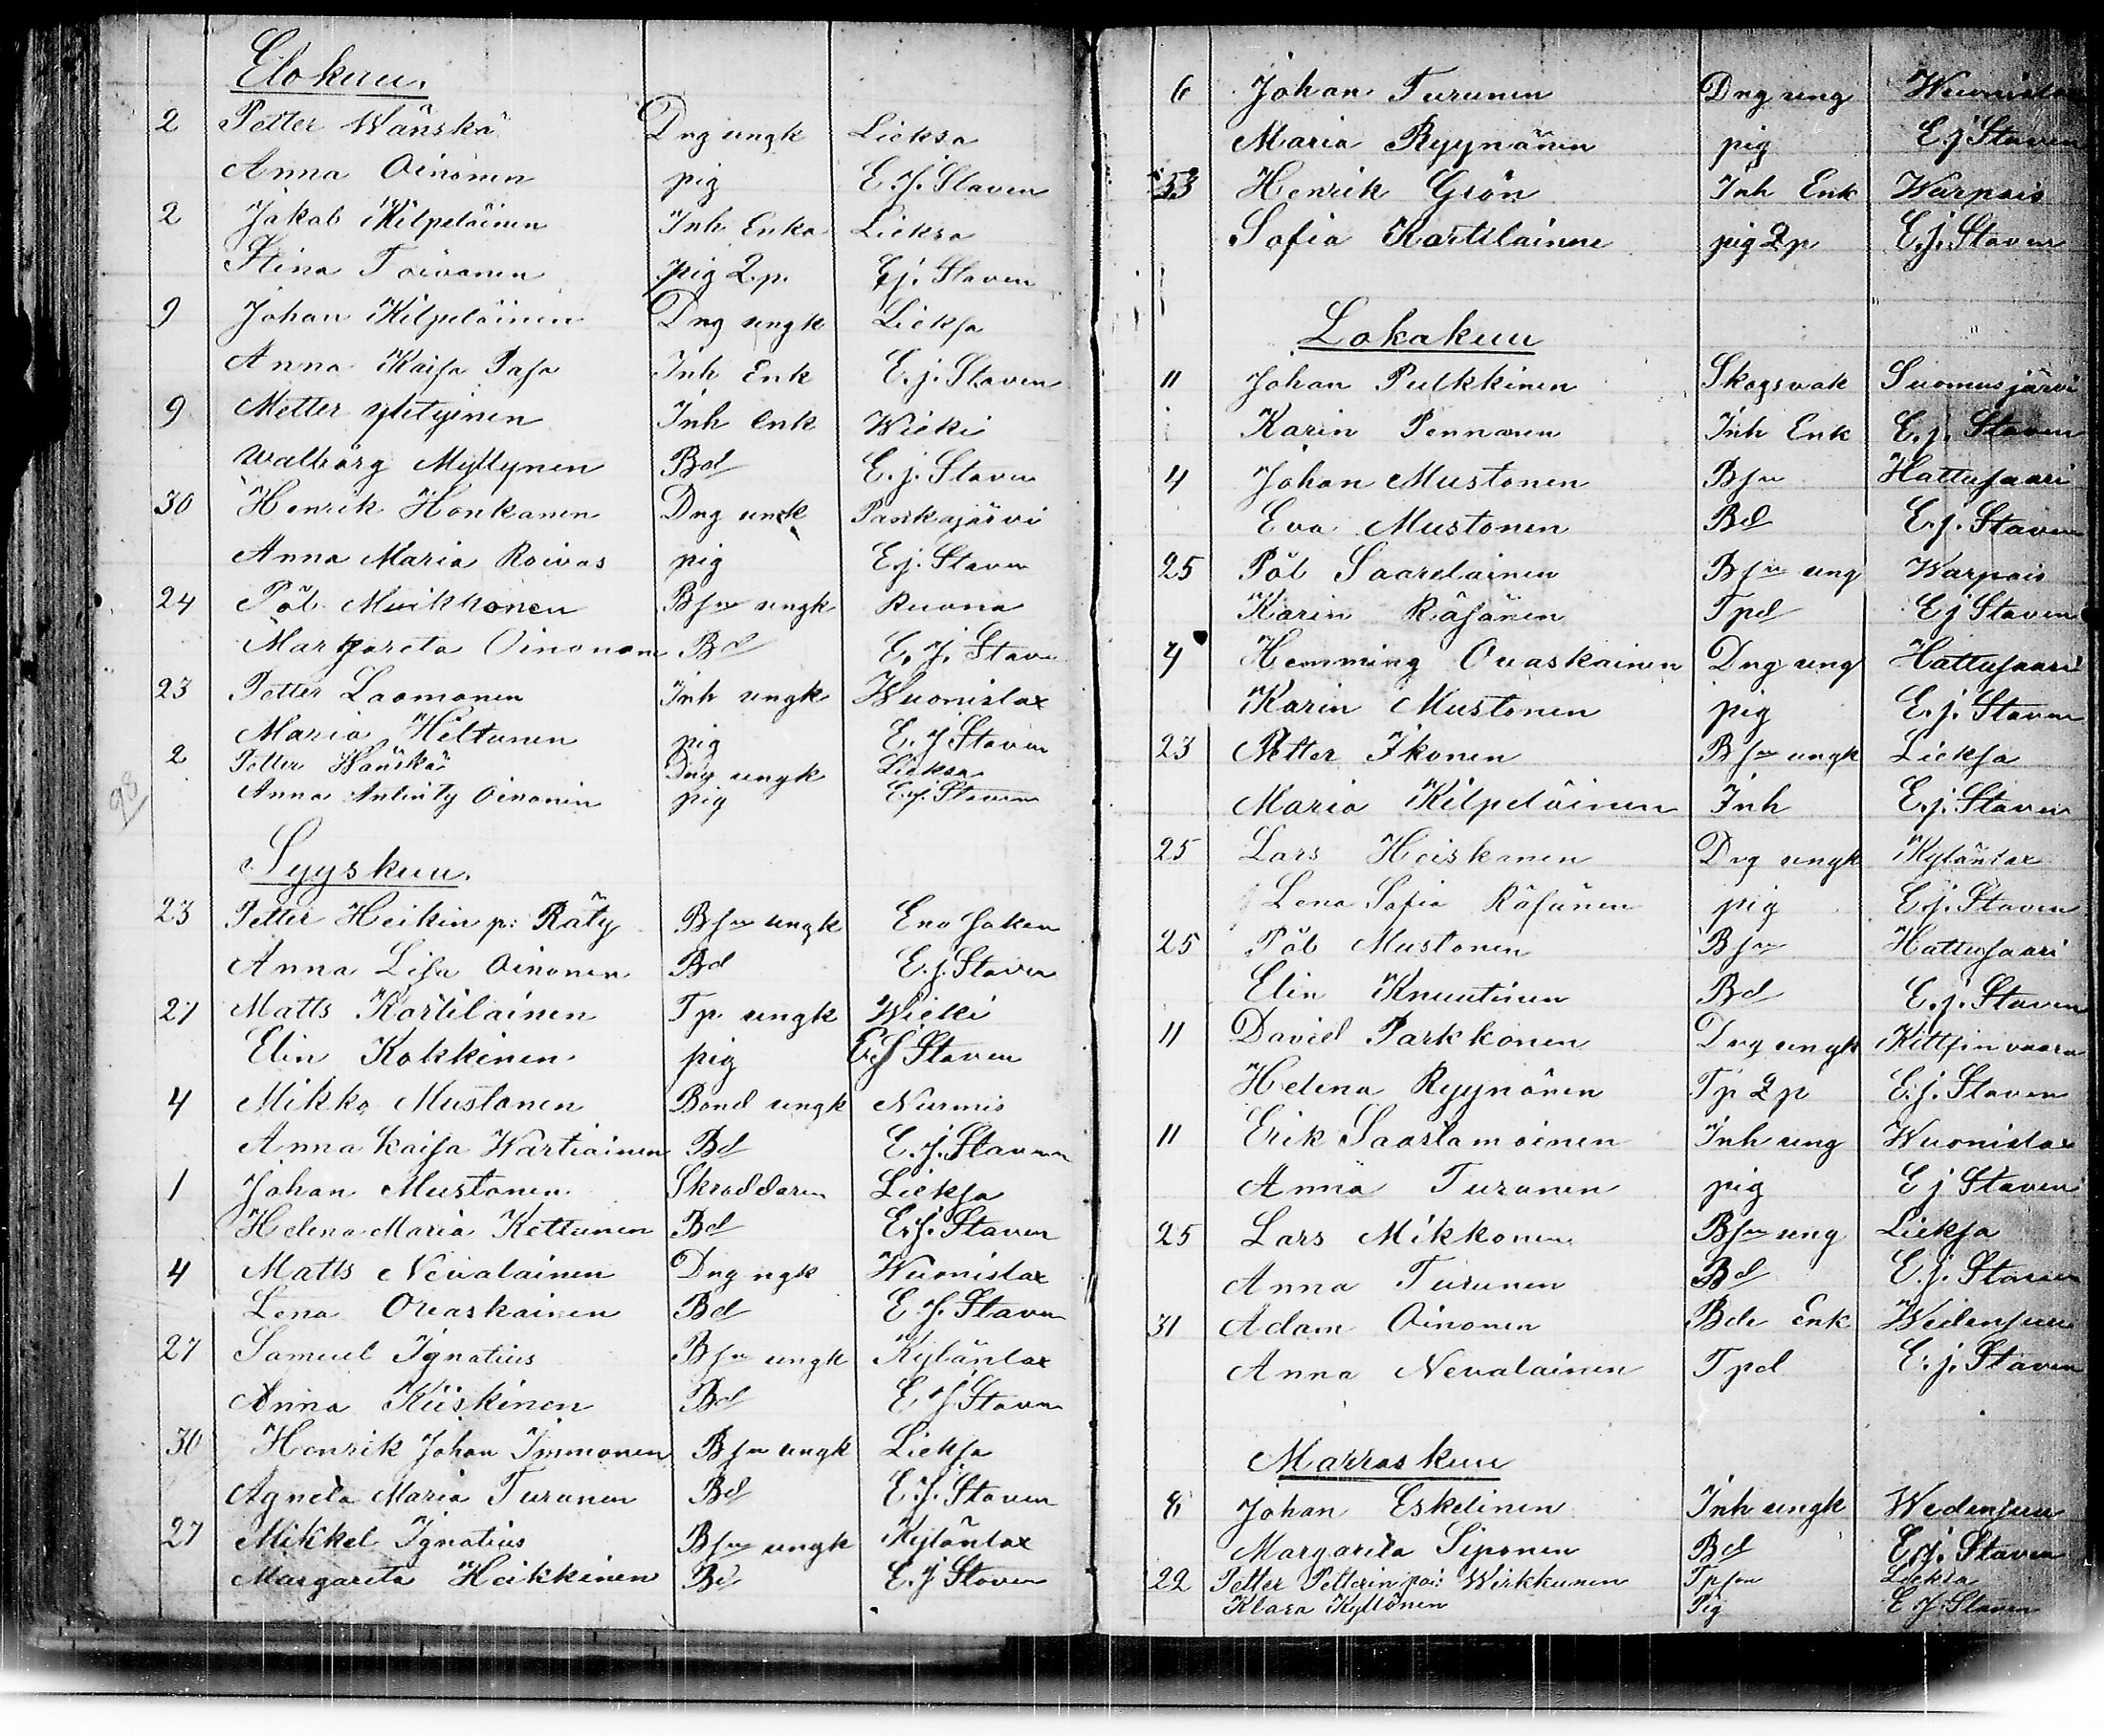 Elokuu.
2 Petter Wänskä Dng ungk Lieksa
Anna Oinonen pig E. J. Staven
2 Jakob Kilpeläinen Inh Enka Lieksa
Stina Toivanen pig 2.p. E j. Staven
9 Johan Kilpeläinen Dng ungk Lieksa
Anna Kaisa Pasa Inh Enk E. j. Staven
9 Inh Enk Wieki
Walborg Myllynen Bd E. j. Staven
30 Henrik Honkanen Dng unk Pankajärvi
Anna Maria Roivas pig E. j. Staven
24 Påb Muikkonen Bsn ungk Ruuna
Margareta Oinonen Bd E. J. Stave
23 Petter Laamanen Inh ungk Wuonislax
Maria Hiltunen pig E. J Staven
2 Petter Wänskä Dng ungk Lieksa
Anna Oinonin pig E. J. Staven
98
Syyskuu.
23 Petter Heikin p: Räty Bsn ungk Eno saken
Anna Lisa Oinonen Bd E. J. Staven
27 Matts Kortilainen Tp ungk Wieki
Elin Kokkinen pig E J Staven
4 Mikko Mustonen Bond ungk Nurmis
Anna Kaisa Wartiainen Bd E. J. Staven
1 Johan Mustonen Skraddaren Lieksa
Helena Maria Kettunen Bd E. J. Staven
4 Matts Nevalainen Dng ngk Wuonislax
Lena Ovaskainen Bd E J. Staven
27 Samuel Ignatius Bsn ungk Kylänlax
Anna Kiiskinen Bd E J Staven
30 Henrik Johan Immonen Bsn ungk Lieksa
Agneta Maria Turunen Bd E J. Staven
27 Mikkel Ignatius Bsn ungk Kylänlax
Margareta Heikkinen Bd E. J Staven
6 Johan Turunen Dng ung Wuonislax
Maria Ryynänen pig E j Staven
Henrik Grön Inh Enk Warpais
Sofia Kartilainne pig 2p E. j. Staven
Lokakuu
11 Johan Pulkkinen Skogsvak Suomusjärvi
Karin Pennanen Inh Enk E. j. Staven
4 Johan Mustonen Bsn Hattusaari
Eva Mustonen Bd E. j. Staven
25 Påb Saarelainen Bsn ung Warpais
Karin Räsänen Tpd E j Staven
4 Hemming Ovaskainen Dng ung Hattusaari
Karin Mustonen pig E. j. Staven
23 Petter Ikonen Bsn ungk Lieksa
Maria Kilpeläinen Inh E. j. Staven
25 Lars Heiskanen Dng ungk Kylänlax
Lena Sofia Räsänen pig E. j. Staven
25 Påb Mustonen Bsn Hattusaari
Elin Knuutinen Bd E. j. Staven
11 David Parkkonen Dng ungk Kittsinvaara
Helena Ryynänen Tp 2 p E. j. Staven
11 Erik Saastamoinen Inh ung Wuonislax
Anna Turunen pig E j Staven
25 Lars Mikkonen Bsn ung Lieksa
Anna Turunen Bd E. j. Staven
31 Adam Oinonen Bde Enk Wiedensuu
Anna Nevalainen Tpd E. j. Staven
Marraskuu
8 Johan Eskelinen Inh ungk Wedensuu
Margareta Siponen Bd E. j. Staven
22 Petter Petterin poi: Wirkkunen Tpson Lieksa
Klara Kyllönen Pig E J. Staven